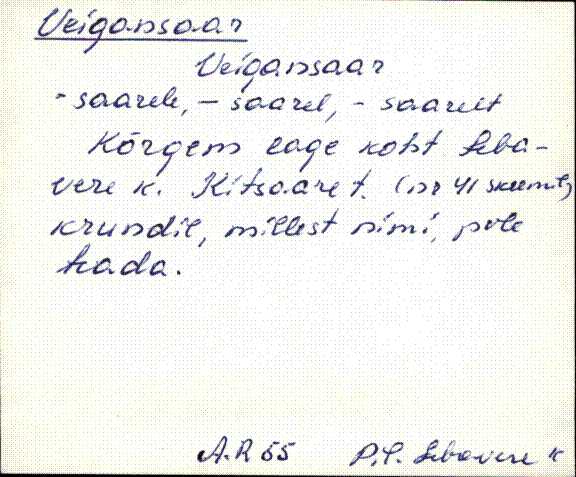 Veigansaar
Veigansaar
- saarele, - saarel, - saarelt
Kõrgem lage koht Leba-
vere k. Kitsaare t. (nr 41 skeemil)
krundil, millest nimi, pole
teada.
A.R 55 P.C. Lebavere k